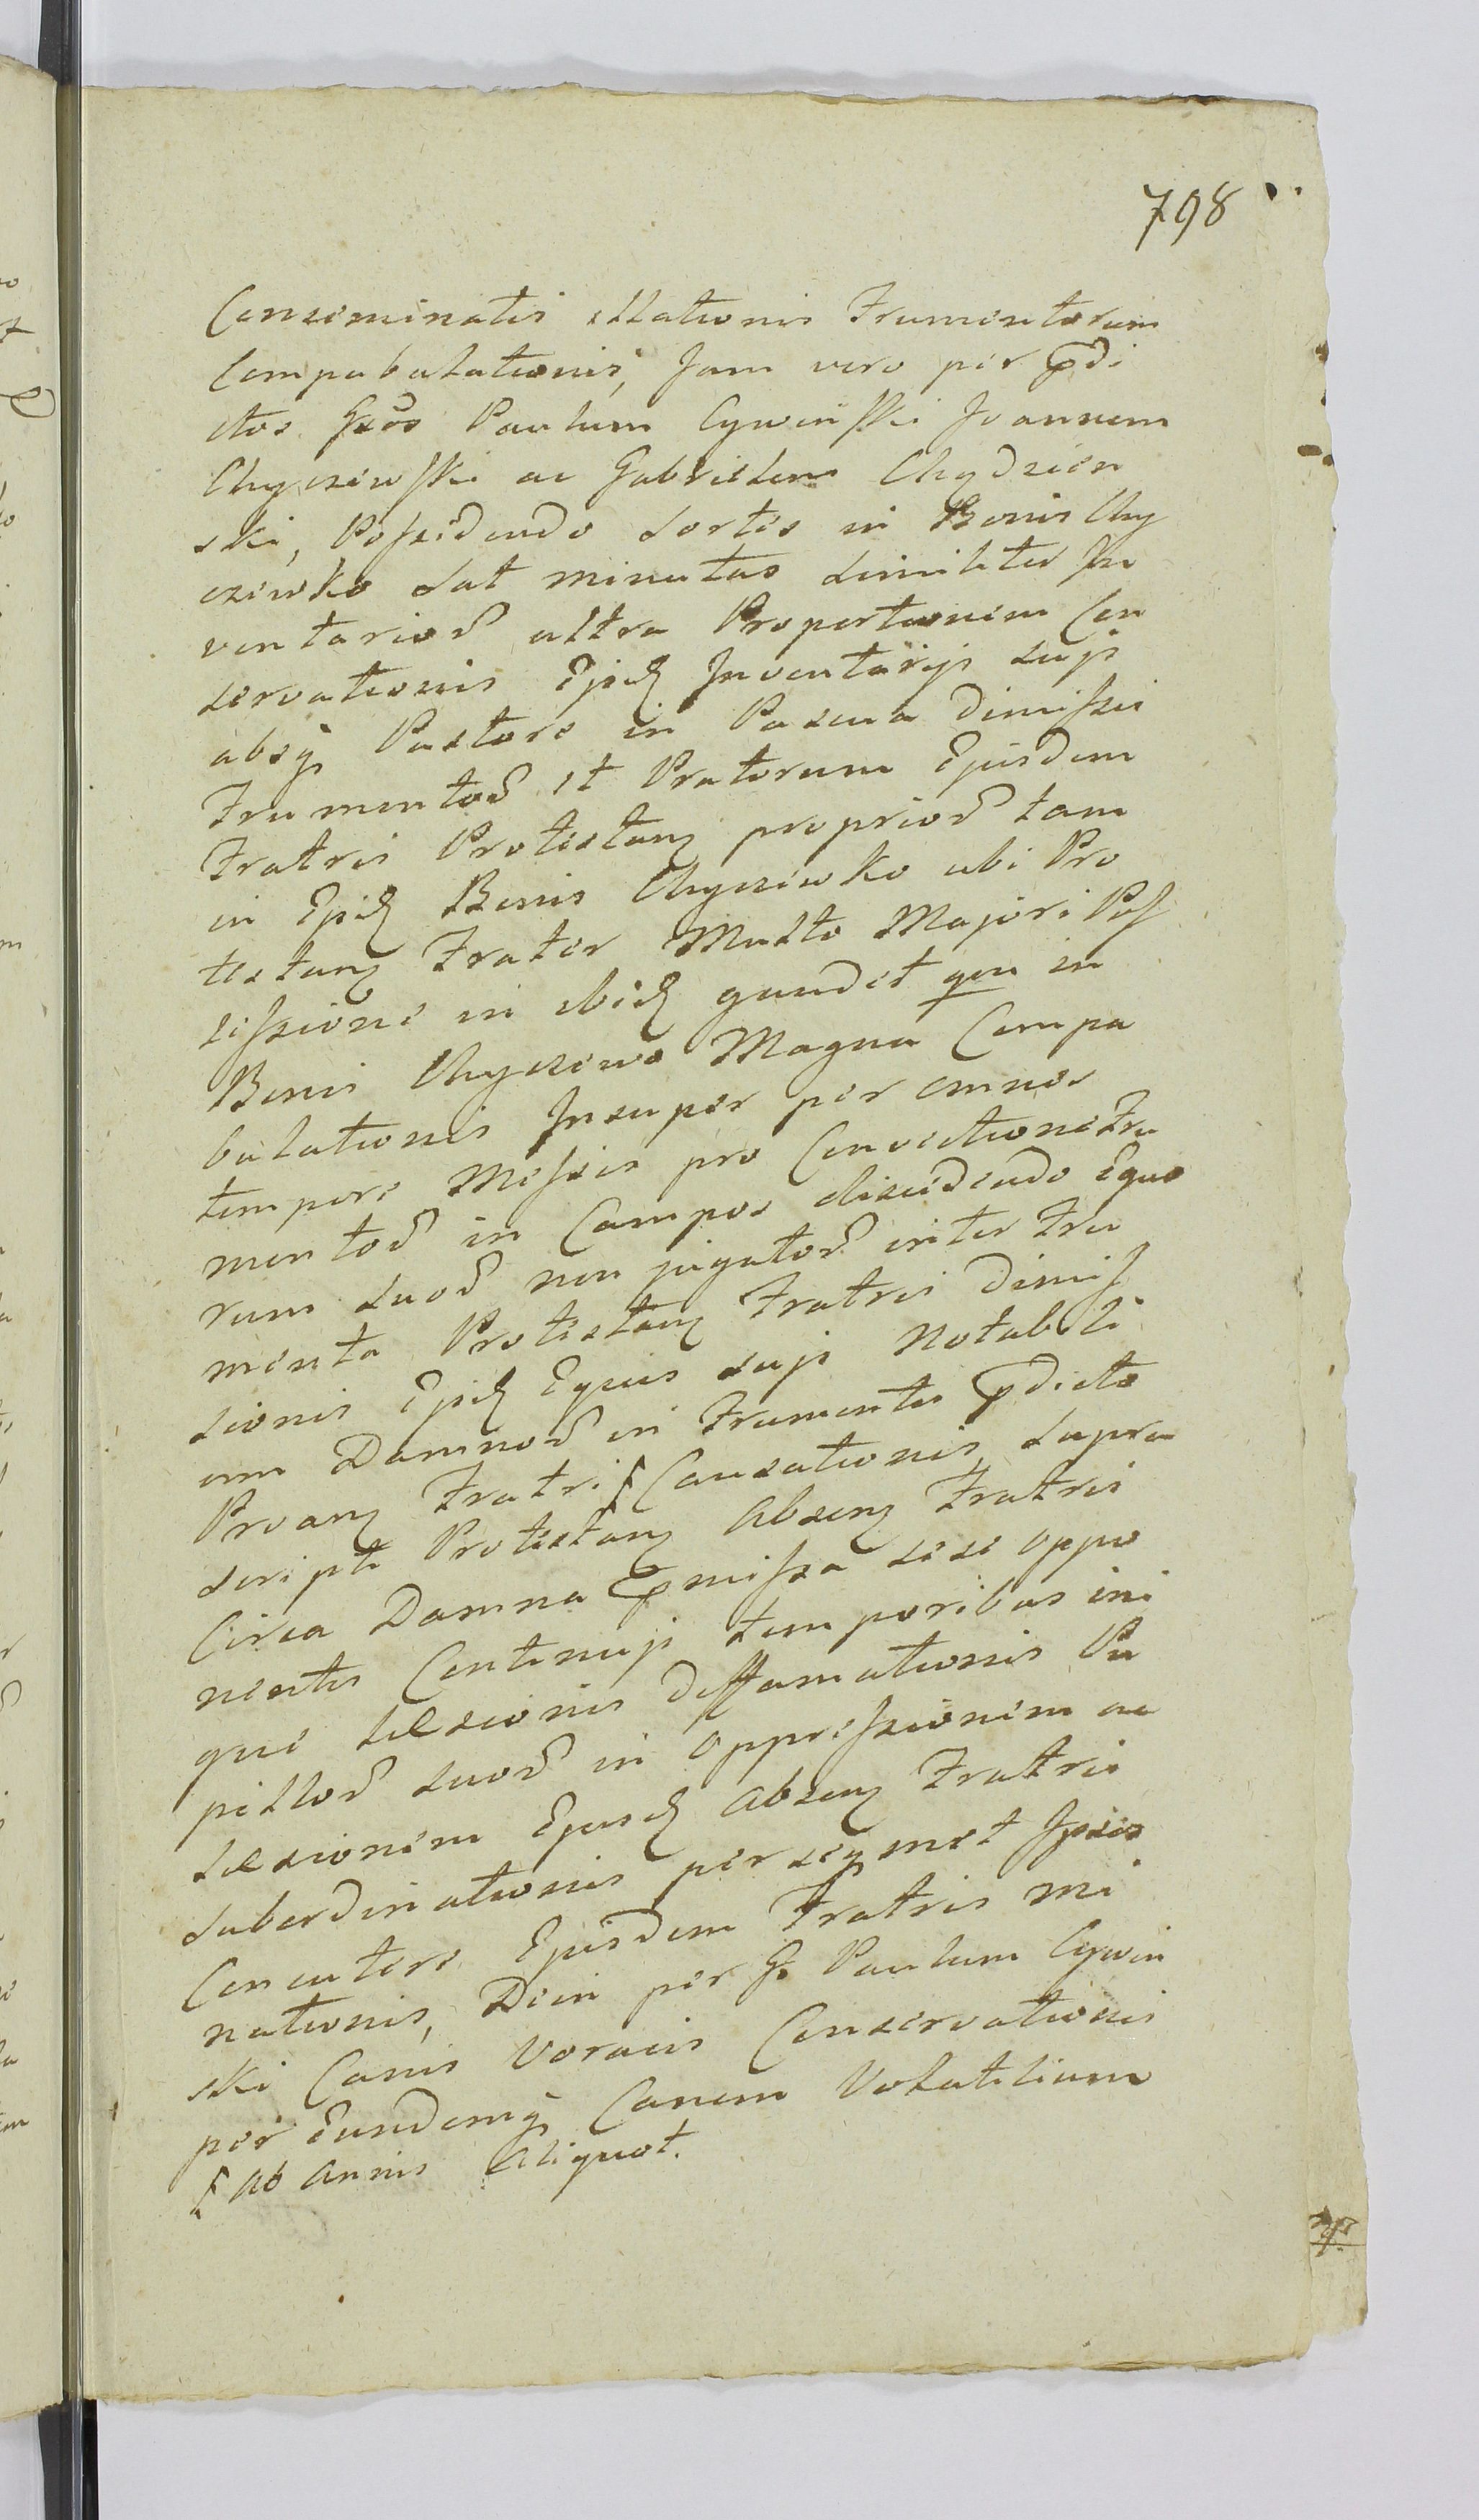 798
Conseminatis illationis Frumentorum
Compabulationis, Jam vero per prædi
ctos Gsos Paulum Cywinski Joannem
Chyczewski ac Gabrielem Chydzien
ski, Possidendo Sortes in Bonis Chy
czewko Sat minutas Similiter In
ventarior ultra Proportionem Con
servationis Ejusd Inventarÿs Suÿs
absq Pastore in Pascua Dimissis
Frumentor et Pratorum Ejusdem
Fratris Protestan proprior tam
in Ejusd Bonis Chyczewko ubi Pro
testans Frater Multo Majori Pos
sessione in ibid gaudet qm in
Bonis Chyczewo Magna Compa
bulationis Insuper per omnes
tempore Messis pro Convectione Fru
mentor in Campos discedendo Equo
rum Suor non jugator inter Fru
menta Protestan Fratris Dimis
sionis Ejusd Equis Suÿs Notabili
um Damnor in Frumentis prædicto
Protans Fratris Causationis, Supra
scripti Protestan Absen Fratris
Circa Damna præmissa sese oppo
nentis Continuÿs temporibus ini
que Læsionis Diffamationis Pu
pillor Suor in Oppressionem ac
Læsionem Ejusd Absen Fratris
Subordinationis per seqmet Ipsos
Concutere Ejusdem Fratris mi
nationis, Dein per G. Paulum Cywin
ski Canis Voracis Conservationis
per Eundemq Canem Volatilium
Ab Annis Aliquot.